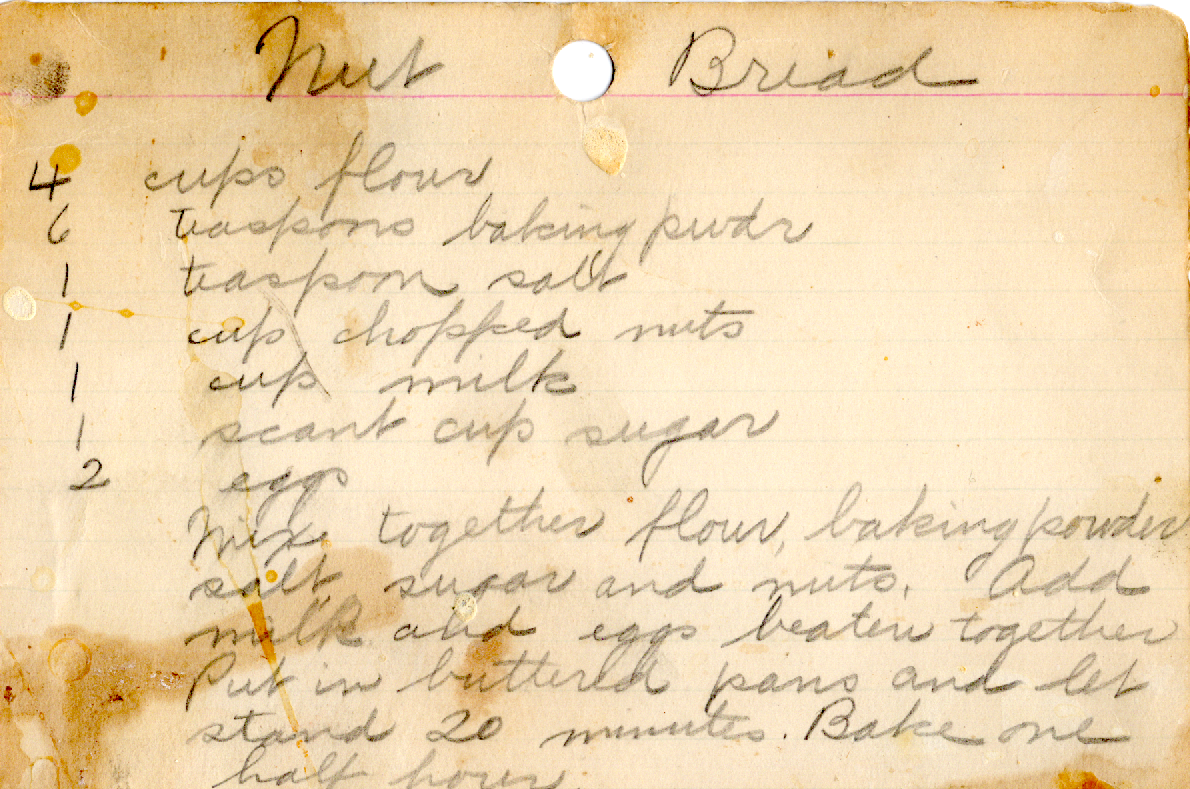 Nut Bread
4 cups flour
6 teaspoons baking pwdr
1 teaspoon salt
1 cup chopped nuts
1 cup milk
1 scant cup sugar
2 eggs
Mix together flour, baking powder
salt sugar and nuts. Add
milk and eggs beaten together
Put in buttered pans and let
stand 20 minutes. Bake one
half hour.